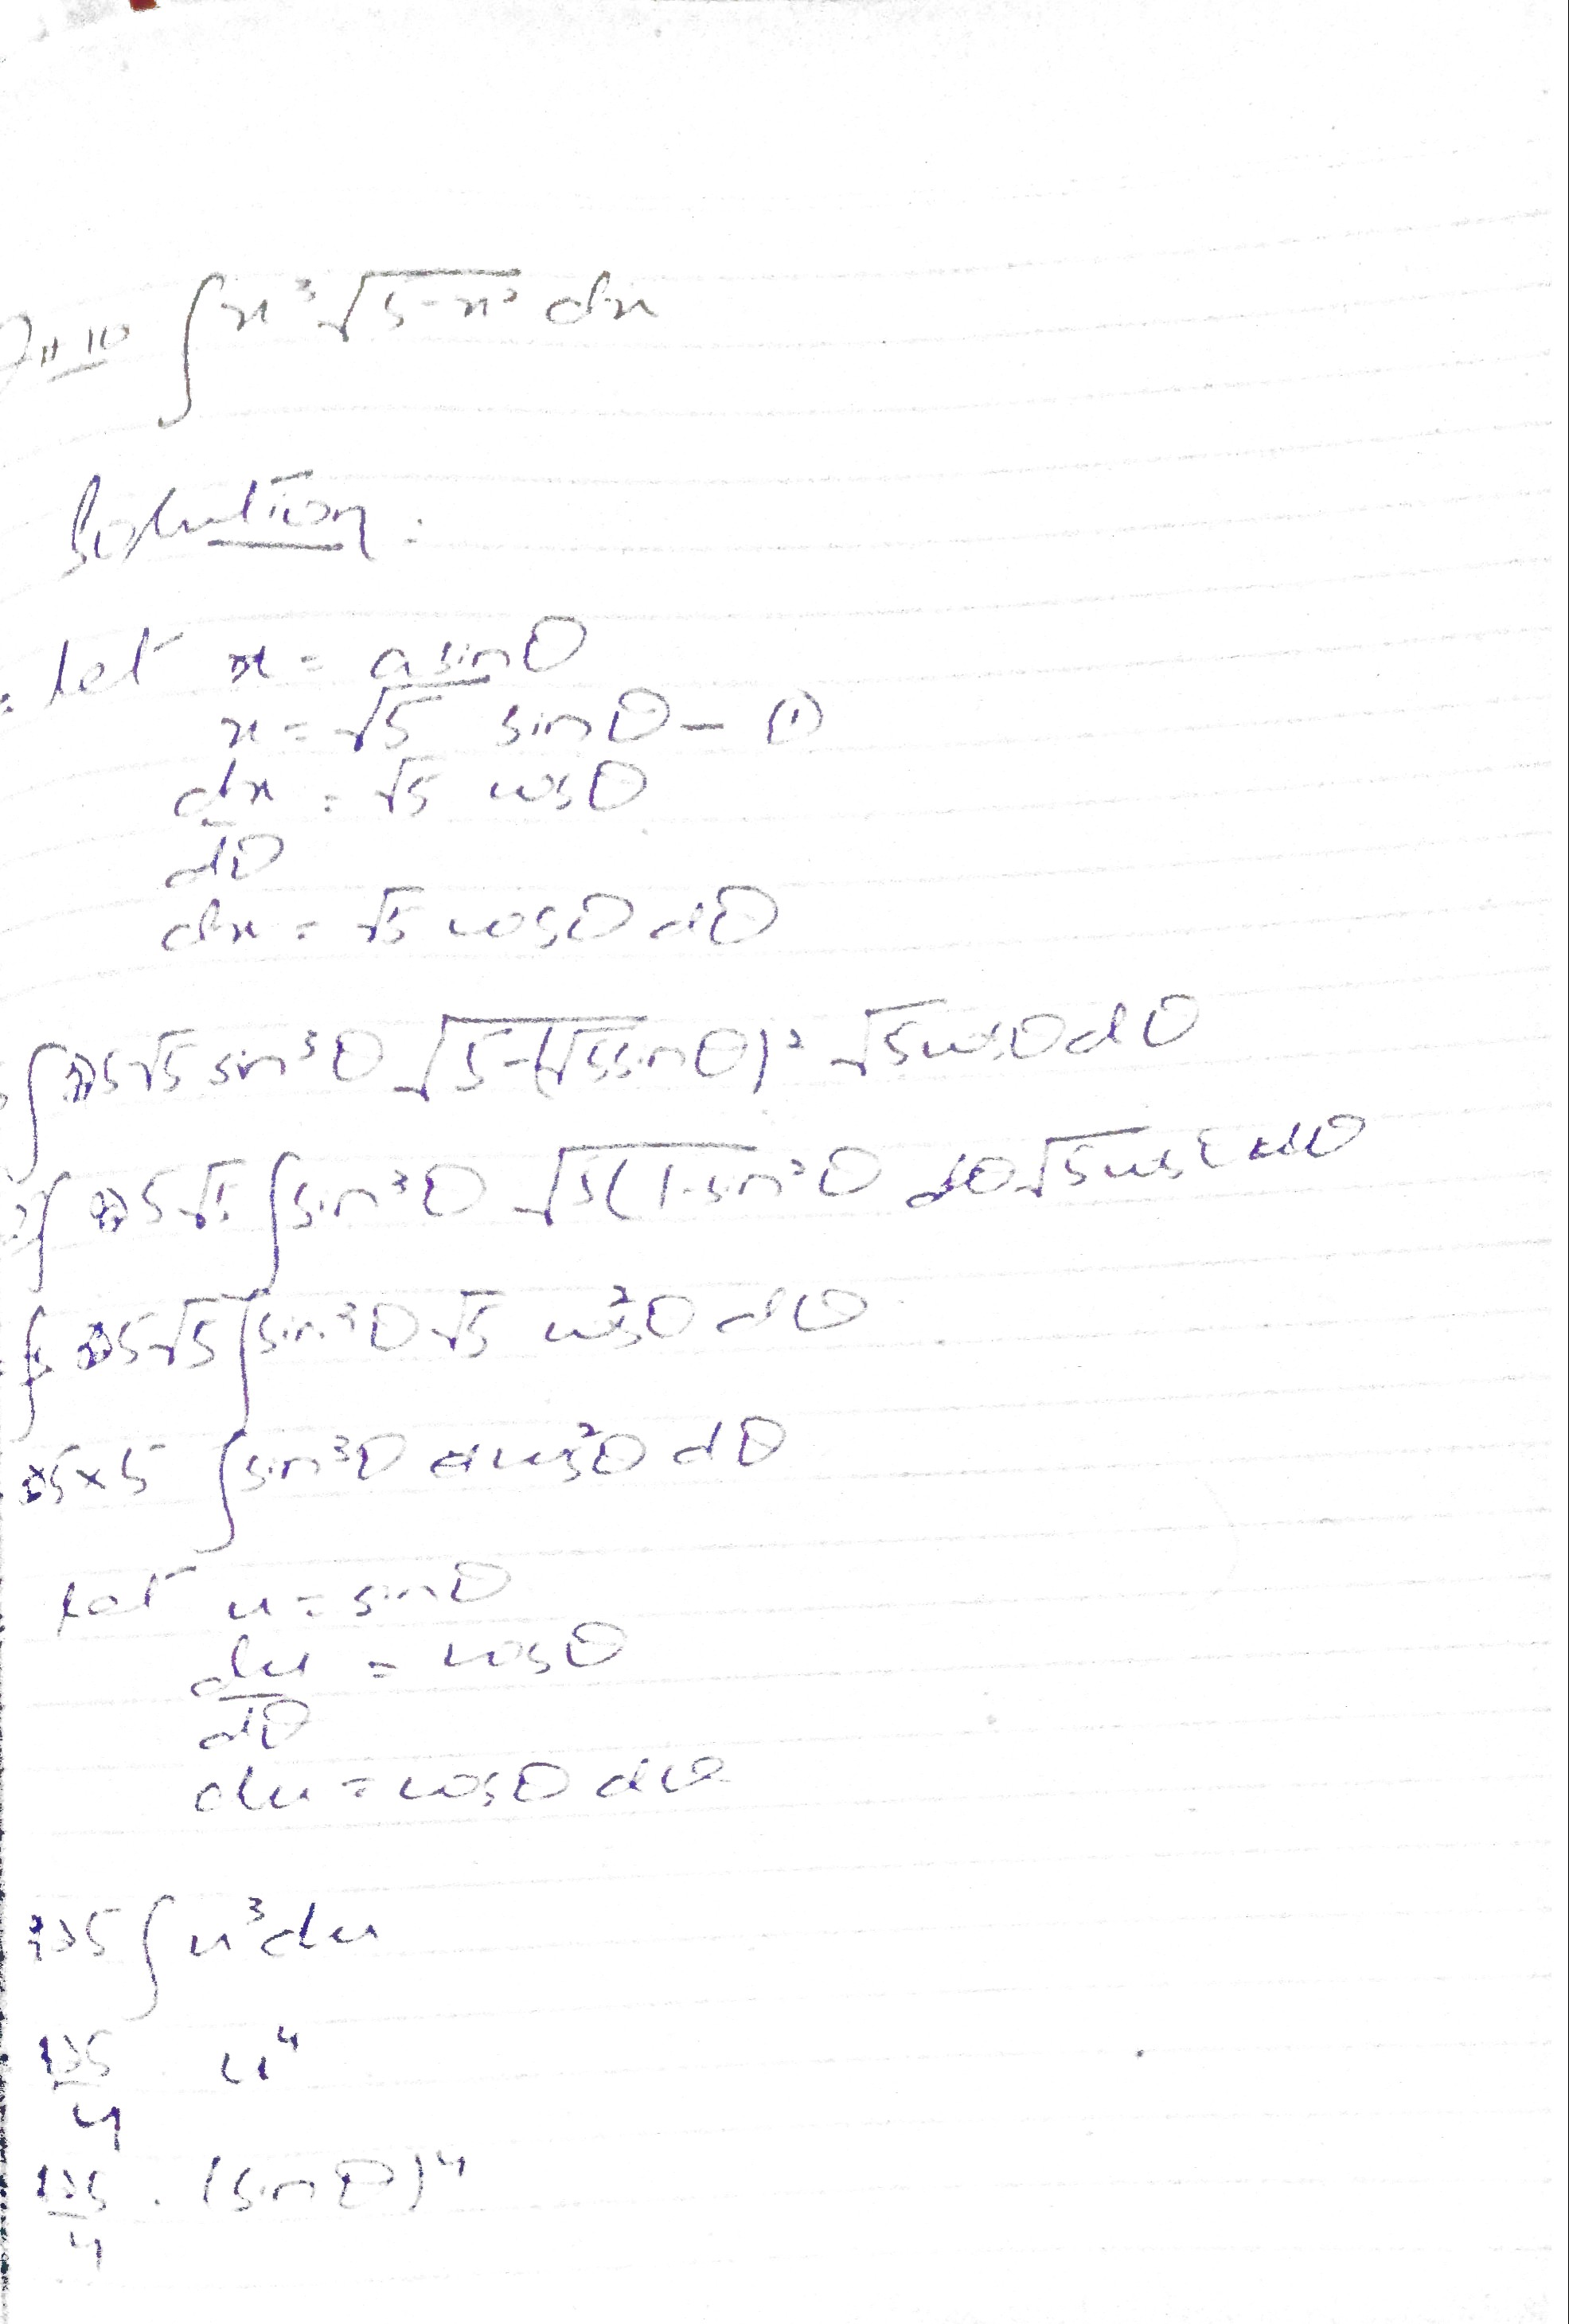 Qn 10 ∫x³√5-x² dx
Solution:
Let x = a sinθ
x = √5 sinθ - (1)
dx = √5 cosθ
dθ
dx = √5 cosθ dθ
∫ 5√5 sin³θ √5-(√5sinθ)² √5cosθdθ
5√5 ∫sin³θ √5(1-sin²θ √5cosθdθ
5√5 ∫sin³θ √5 cos²θ dθ
5×5 ∫sin³θ cos²θ dθ
Let u = sinθ
du = cosθ
dθ
du = cosθ dθ
125 ∫u³du
125 u⁴
4
125 . (sinθ)⁴
4